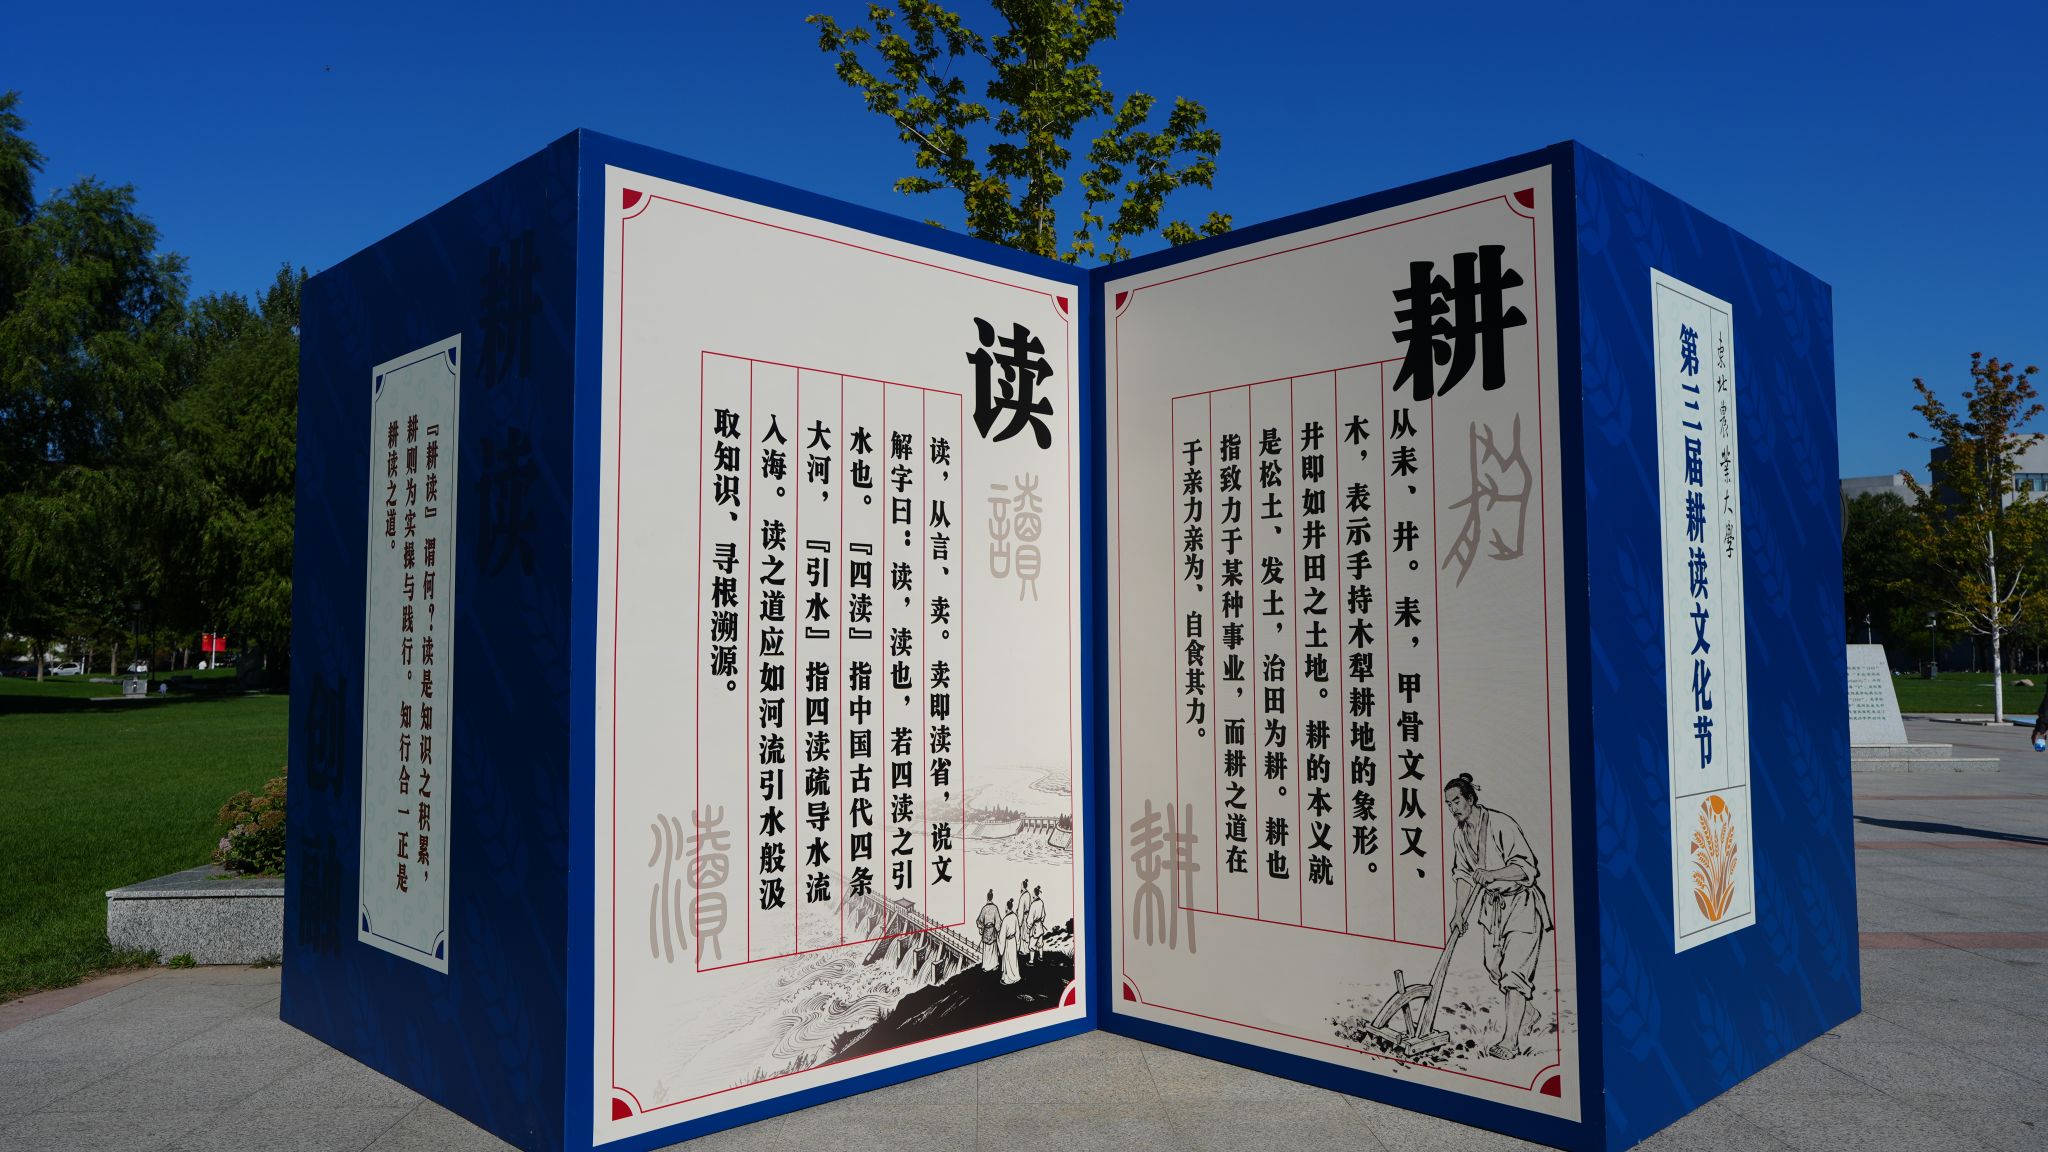 东北农业大学
第三届耕读文化节
耕
从耒、井。耒，甲骨文从又、
木，表示手持木犁耕地的象形。
井即如井田之土地。耕的本义就
是松土、发土，治田为耕。耕也
指致力于某种事业，而耕之道在
于亲力亲为、自食其力。
耕
读
讀
读，从言、卖。卖即渎省，说文
解字曰：读，渎也，若四渎之引
水也。『四渎』指中国古代四条
大河，『引水』指四渎疏导水流
入海。读之道应如河流引水般汲
取知识、寻根溯源。
瀆
耕读
创融
『耕读』谓何？读是知识之积累，
耕则为实操与践行。知行合一正是
耕读之道。